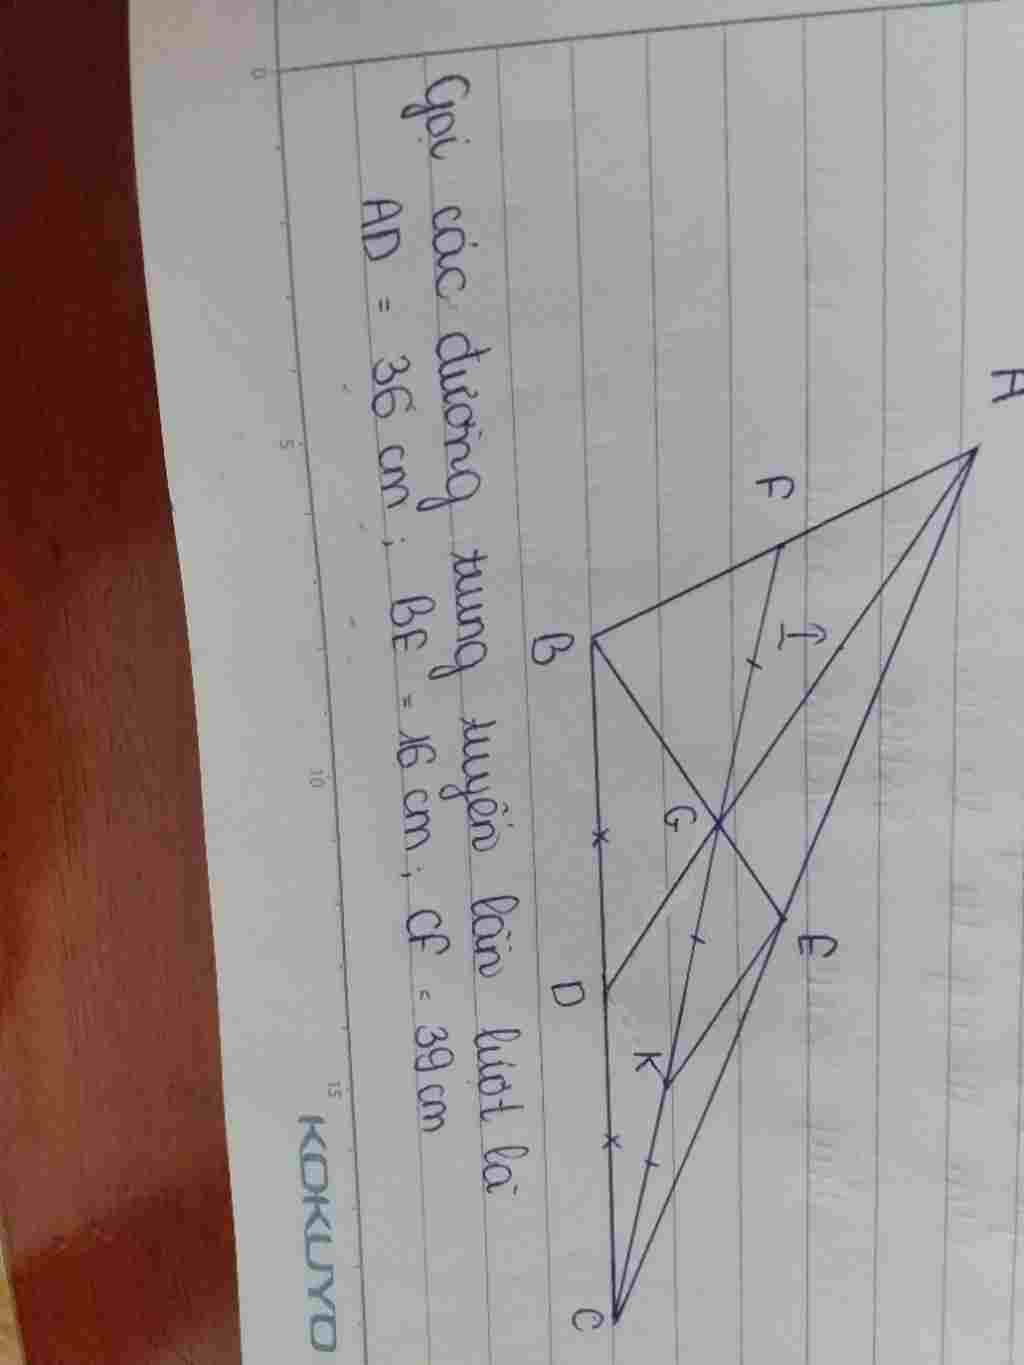 A
F
I
E
G
K
B
D
C
Gọi các đường trung tuyến lần lượt là
AD = 36 cm ; BE = 16 cm ; CF = 39 cm
0
5
10
15
KOKUYO